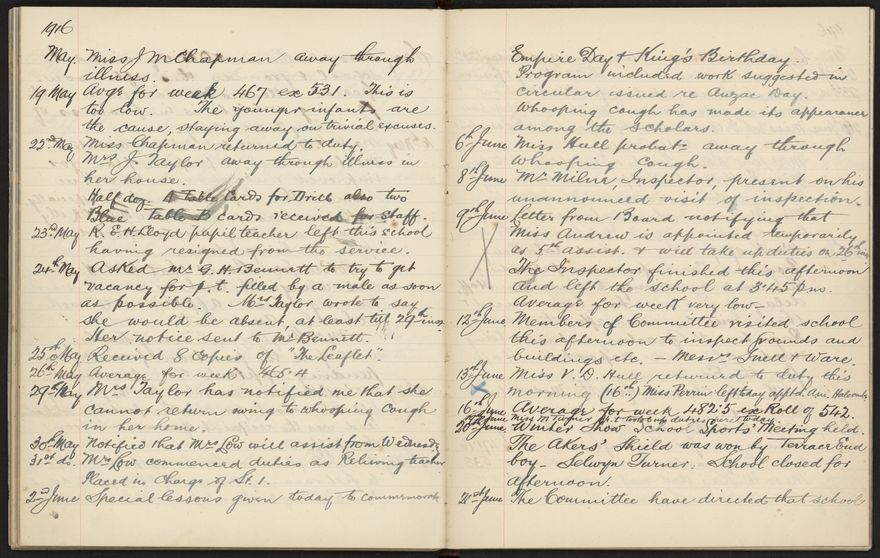 1916
May. Miss J M Chapman away through
illness.
19 May Avge for week 467 ex 531. This is
too low. The younger infants are
the cause, staying away on trivial excuses.
25th May Miss Chapman returned to duty.
Mrs J. Taylor away through illness in
her house.
Half doz. A Table Cards for Drill also two
Blue Table B cards received for Staff.
23rd May R. E. H. Lloyd pupil teacher left this school
having resigned from the service.
24th May Asked Mr G. H. Bennett to try to get
vacancy for p.t. filled by a male as soon
as possible. Mrs Taylor wrote to say
she would be absent, at least till 29th ins.
Her notice sent to Mr Bennett.
25th May Received 8 copies of "The Leaflet".
26th May Average for week 454
29th May Mrs Taylor has notified me that she
cannot return owing to whooping cough
in her home.
30th May Notified that Mrs Low will assist from Wednesdy
31st do. Mrs Low commenced duties as Relieving teacher
Placed in Charge of St. 1.
2nd June Special lessons given today to commemorate
Empire Day & King's Birthday.
Program included work suggested in
circular issued re Anzac Day.
Whooping cough has made its appearance
among the scholars.
6th June Miss Hull probatr away through
whooping cough.
8th June Mr Milne, Inspector, present on his
unannounced visit of inspection.
9th June Letter from Board notifying that
Miss Andrew is appointed temporarily
as 5th assist. & wid take up duties on 26th ins
The Inspector finished this afternoon
and left the school at 3.45 pm.
Average for week very low
12th June Members of Committee visited school
this afternoon to inspect grounds and
buildings etc. - Messrs Snell & Ware.
13th June Miss V. D. Hull returned to duty this
morning (16th) Miss Perrin left today apptd. Ass. Halcombe
16th June Average for week 482.5 ex Roll of 542.
June Miss M Turner took up duties here today
20th June Winter Show School Sports' Meeting held.
The Akers' Shield was won by Terrace End
boy - Selwyn Turner. School closed for
afternoon.
21st June The Committee have directed that school